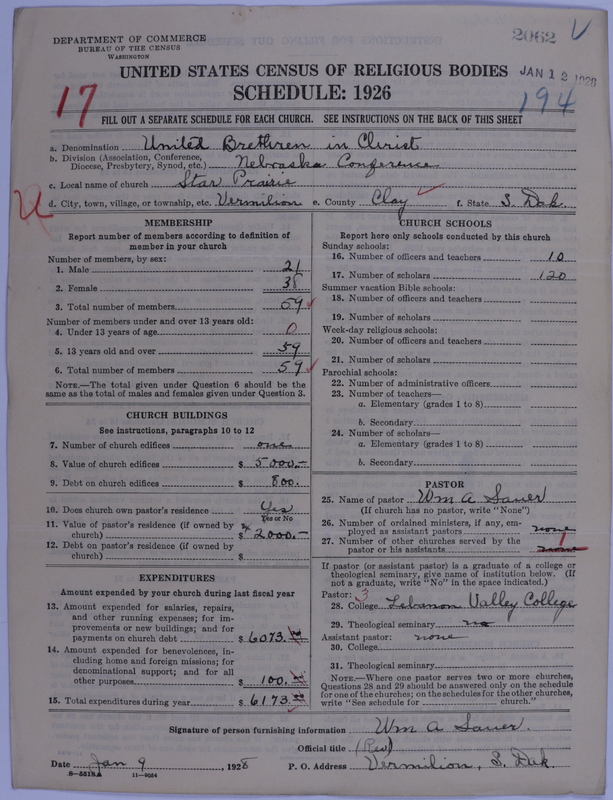 DEPARTMENT OF COMMERCE
BUREAU OF THE CENSUS
WASHINGTON
2062 V
UNITED STATES CENSUS OF RELIGIOUS BODIES
JAN 12 1928
SCHEDULE: 1926
17
194
FILL OUT A SEPARATE SCHEDULE FOR EACH CHURCH. SEE INSTRUCTIONS ON THE BACK OF THIS SHEET
a. Denomination United Brethren in Christ
b. Division (Association, Conference, Diocese, Presbytery, Synod, etc.) Nebraska Conference
c. Local name of church Star Prairie
d. City, town, village, or township, etc. Vermilion e. County Clay f. State S. Dak.
MEMBERSHIP
Report number of members according to definition of
member in your church
Number of members, by sex:
1. Male 21
2. Female 38
3. Total number of members 59
Number of members under and over 13 years old:
4. Under 13 years of age 0
5. 13 years old and over 59
6. Total number of members 59
NOTE.—The total given under Question 6 should be the
same as the total of males and females given under Question 3.
CHURCH BUILDINGS
See instructions, paragraphs 10 to 12
7. Number of church edifices one
8. Value of church edifices $ 5000.—
9. Debt on church edifices $ 800.
10. Does church own pastor's residence? Yes
Yes or No
11. Value of pastor's residence (if owned by
church) $ 2000.—
12. Debt on pastor's residence (if owned by
church) $
EXPENDITURES
Amount expended by your church during last fiscal year
13. Amount expended for salaries, repairs,
and other running expenses; for im-
provements or new buildings; and for
payments on church debt $ 6073.00
14. Amount expended for benevolences, in-
cluding home and foreign missions; for
denominational support; and for all
other purposes $ 100.00
15. Total expenditures during year $ 6173.00
CHURCH SCHOOLS
Report here only schools conducted by this church
Sunday schools:
16. Number of officers and teachers 10
17. Number of scholars 120
Summer vacation Bible schools:
18. Number of officers and teachers
19. Number of scholars
Week-day religious schools:
20. Number of officers and teachers
21. Number of scholars
Parochial schools:
22. Number of administrative officers
23. Number of teachers—
a. Elementary (grades 1 to 8)
b. Secondary
24. Number of scholars—
a. Elementary (grades 1 to 8)
b. Secondary
PASTOR
25. Name of pastor Wm A Sauer
(If church has no pastor, write "None")
26. Number of ordained ministers, if any, em-
ployed as assistant pastors none
27. Number of other churches served by the
pastor or his assistants none 1
If pastor (or assistant pastor) is a graduate of a college or
theological seminary, give name of institution below. (If
not a graduate, write "No" in the space indicated.)
Pastor: 3
28. College Lebanon Valley College
29. Theological seminary no
Assistant pastor: none
30. College
31. Theological seminary
NOTE.—Where one pastor serves two or more churches,
Questions 28 and 29 should be answered only on the schedule
for one of the churches; on the schedules for the other churches,
write "See schedule for church."
Signature of person furnishing information Wm A Sauer.
Official title (Rev)
Date Jan 9, 1928 P. O. Address Vermilion, S. Dak
8-5518A 11-9024